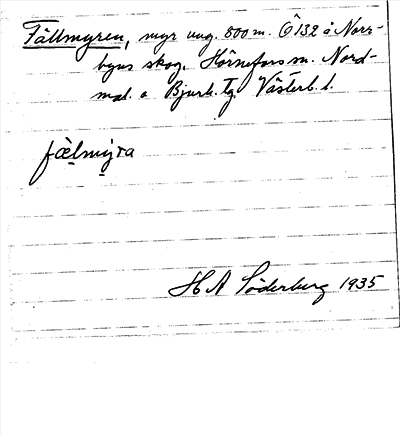 Fällmyren, myr ung. 800 m. Ö 132 å Norr-
byns skog. Hörnefors sn. Nord-
mal. o Bjurh. tg. Västerb. l.
fælmyra
H A Söderberg 1935